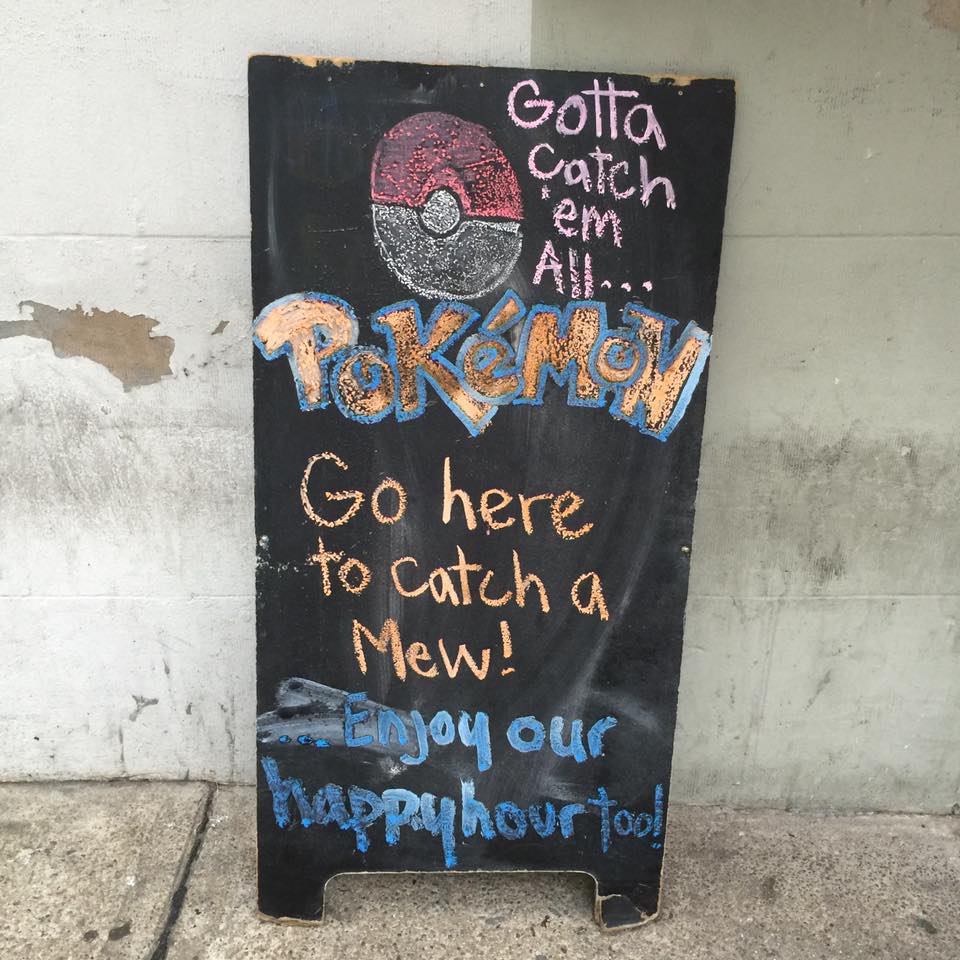 Gotta
catch
'em
All...
POKéMON
Go here
to catch a
Mew!
... Enjoy our
happy hour too!